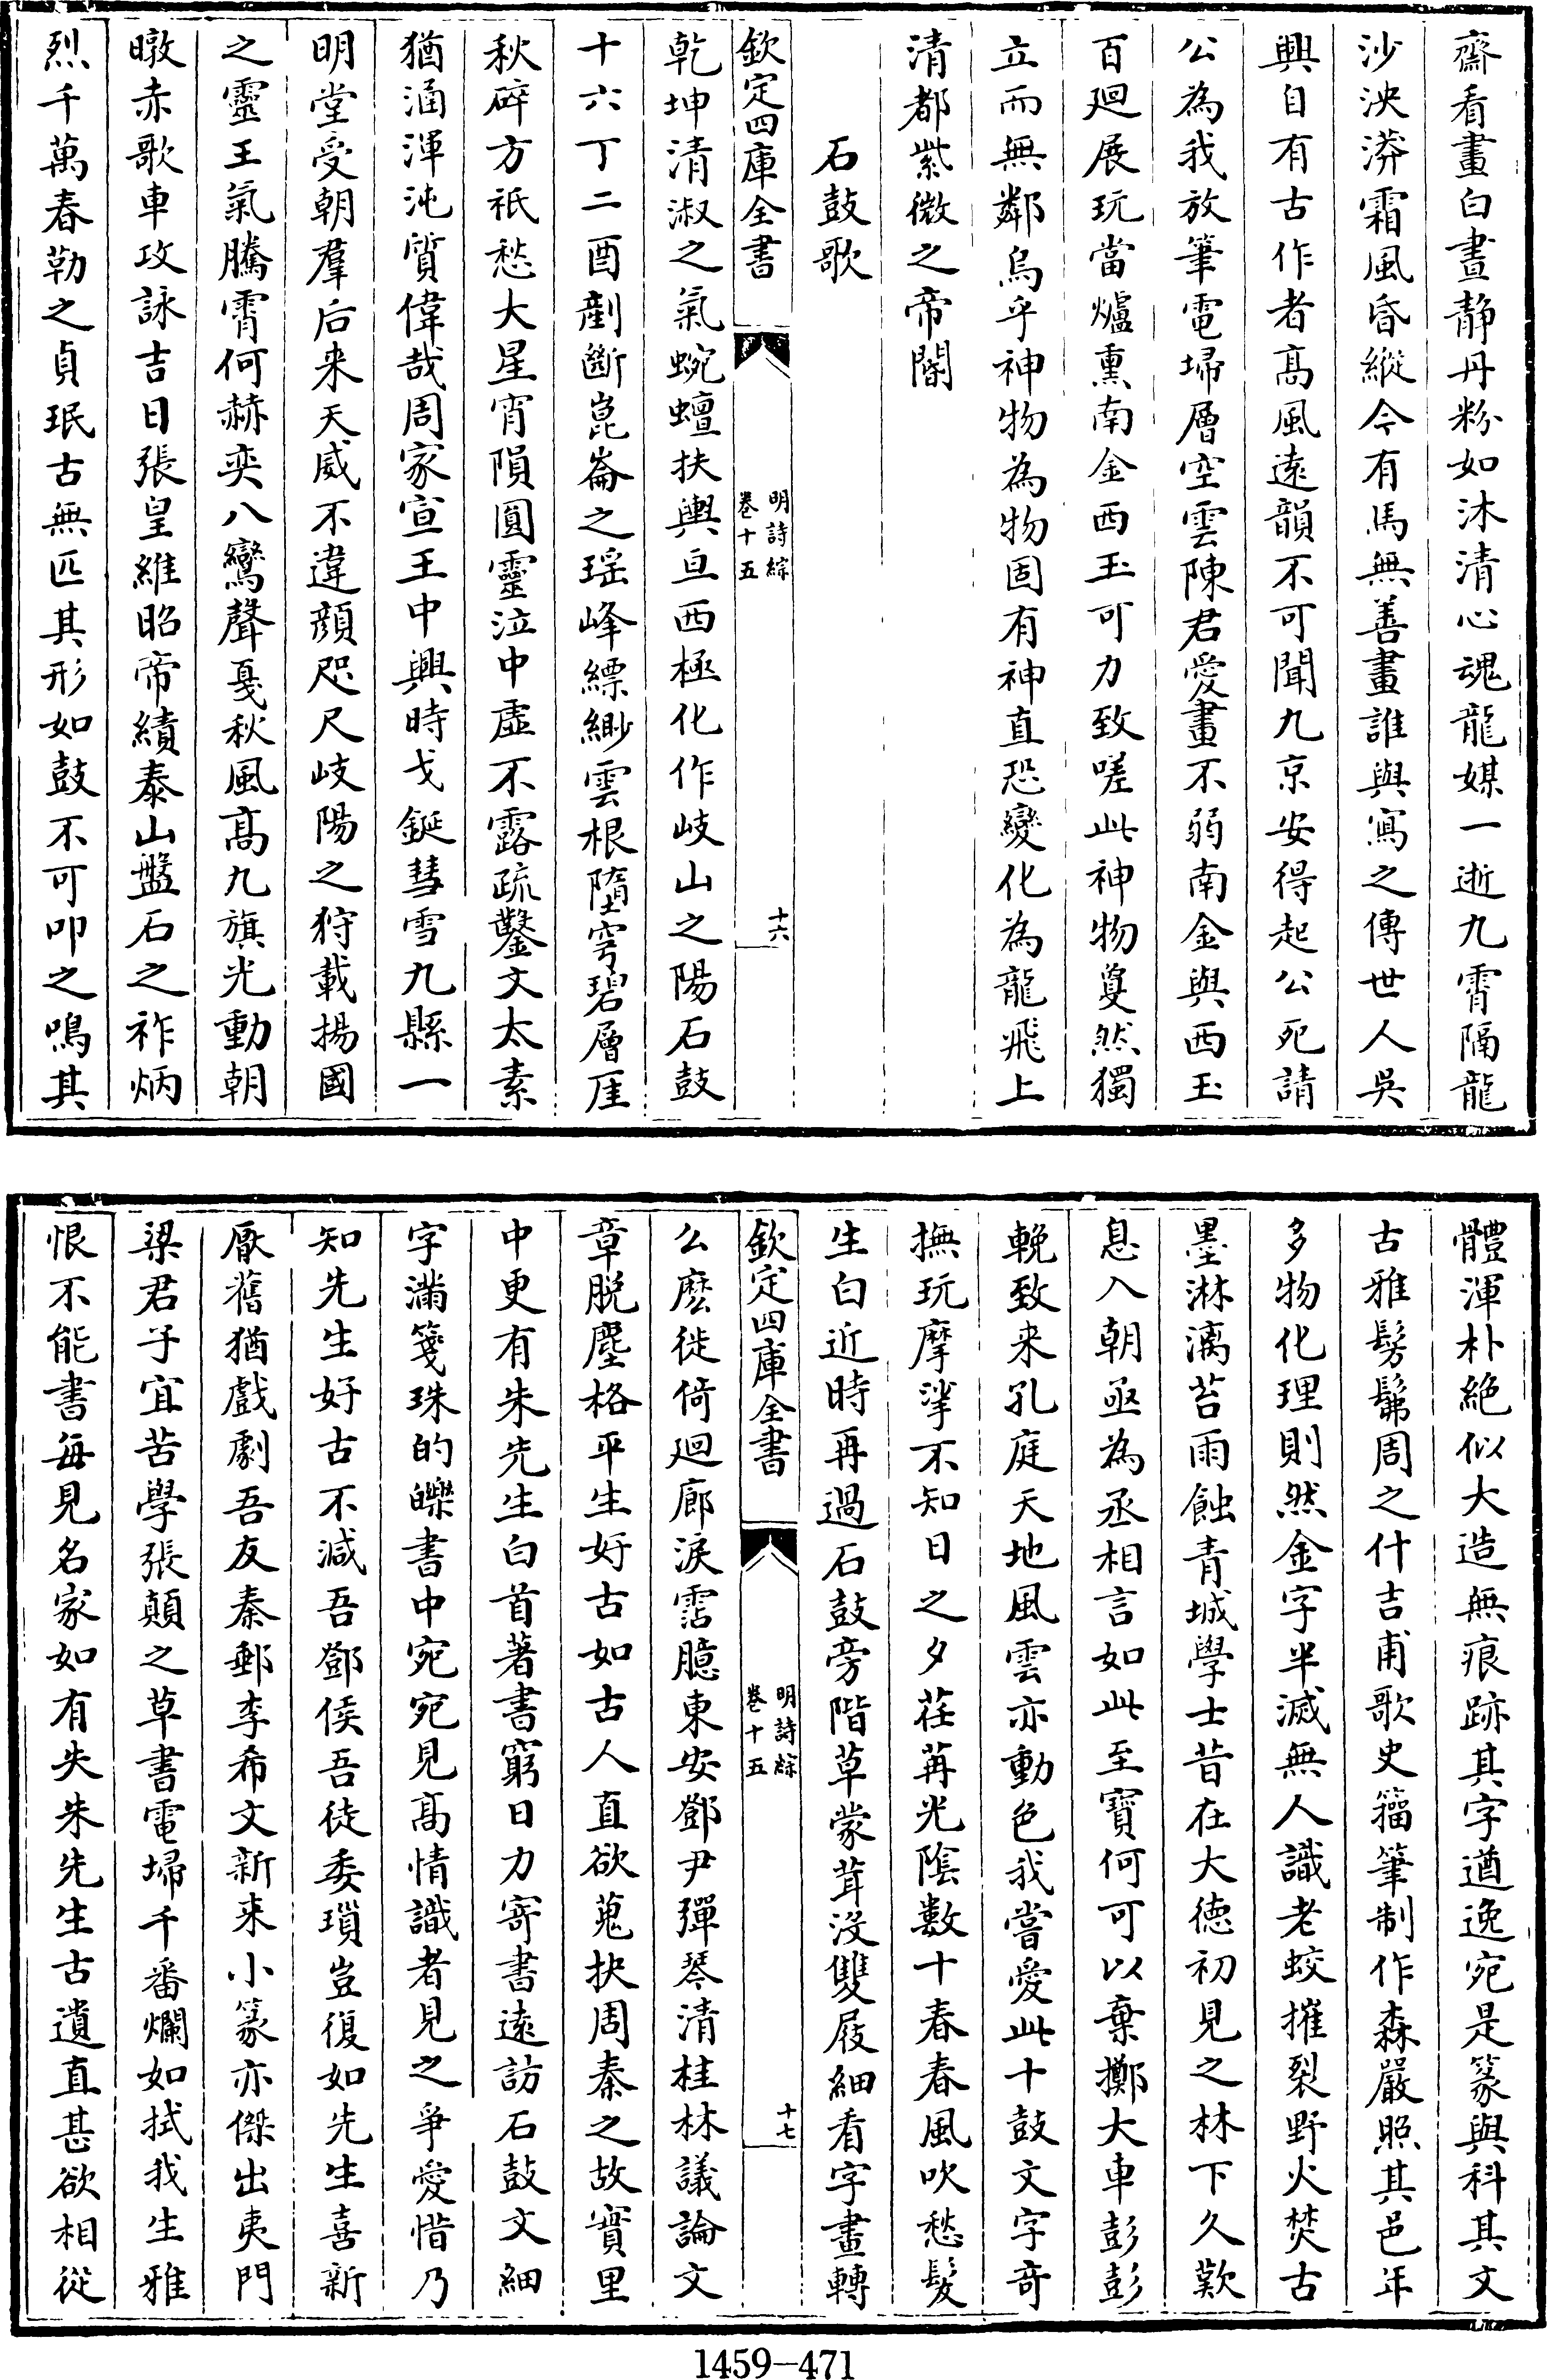 齋看畫白晝静丹粉如沐清心魂龍媒一逝九霄隔龍
沙泱漭霜風昏縱今有馬無善畫誰與寫之傳世人吳
興自有古作者髙風逺韻不可聞九京安得起公死請
公為我放筆電埽層空雲陳君愛畫不弱南金與西玉
百廻展玩當爐熏南金西玉可力致嗟此神物敻然獨
立而無鄰烏乎神物為物固有神直恐變化為龍飛上
清都紫微之帝閽
石鼓歌
欽定四庫全書
明詩綜
卷十五
十六
乾坤清淑之氣蜿蟺扶輿亘西極化作岐山之陽石鼓
十六丁二酉劃斷崑崙之瑶峰縹緲雲根墮穹碧層厓
秋碎方祇愁大星宵隕圓靈泣中虛不露疏鑿文太素
猶涵渾沌質偉哉周家宣王中興時戈鋋彗雪九縣一
明堂受朝羣后来天威不違顔咫尺岐陽之狩載揚國
之靈王氣騰霄何赫奕八鸞聲戛秋風髙九旗光動朝
暾赤歌車攻詠吉日張皇維昭帝績泰山盤石之祚炳
烈千萬春勒之貞珉古無匹其形如鼓不可叩之鳴其
體渾朴絶似大造無痕跡其字遒逸宛是篆與科其文
古雅髣髴周之什吉甫歌史籀筆制作森嚴照其邑年
多物化理則然金字半滅無人識老蛟摧裂野火焚古
墨淋漓苔雨蝕青城學士昔在大徳初見之林下久歎
息入朝亟為丞相言如此至寶何可以棄擲大車彭彭
輓致来孔庭天地風雲亦動色我嘗愛此十鼓文字竒
撫玩摩挲不知日之夕荏苒光隂數十春春風吹愁髮
生白近時再過石鼓旁階草蒙茸没雙屐細看字畫轉
欽定四庫全書
明詩綜
卷十五
十七
么麽徙倚廻廊淚霑臆東安鄧尹彈琴清桂林議論文
章脱塵格平生好古如古人直欲蒐抉周秦之故實里
中更有朱先生白首著書窮日力寄書逺訪石鼓文細
字滿箋珠的皪書中宛宛見髙情識者見之爭愛惜乃
知先生好古不減吾鄧侯吾徒委瑣豈復如先生喜新
厭舊猶戲劇吾友秦郵李希文新来小篆亦傑出夷門
梁君子宜苦學張顛之草書電埽千番爛如拭我生雅
恨不能書每見名家如有失朱先生古遺直甚欲相從
1459—471